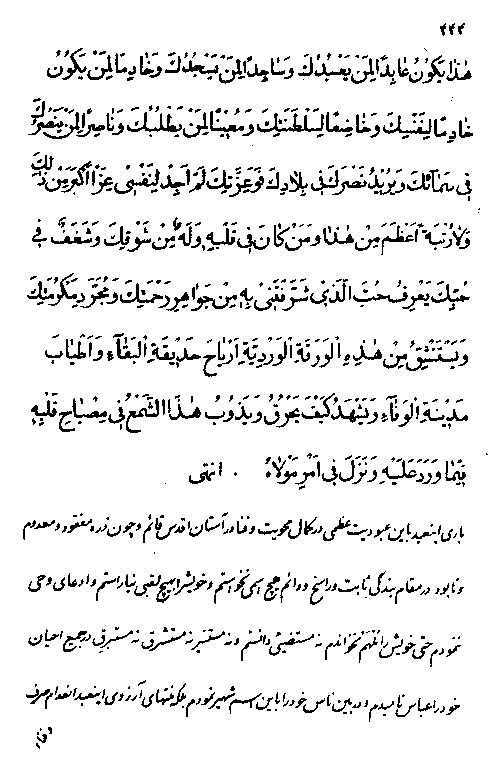 ۴۴۴
هٰذا يَكُونُ عَابِدًا لِمَنْ يَعْبُدُكَ وَسَاجِدًا لِمَنْ يَسْجُدُكَ وَخَادِمًا لِمَنْ يَكُونُ
خَادِمًا لِنَفْسِكَ وَخَاضِعًا لِسَلْطَنَتِكَ وَمُعِينًا لِمَنْ يَطْلُبُكَ وَنَاصِرًا لِمَنْ يَنْصُرُكَ
فِي سَمَائِكَ وَيُرِيدُ نَصْرَكَ فِي بِلَادِكَ فَوَعِزَّتِكَ لَمْ اَجِدْ لِنَفْسِي عِزًّا اَكْبَرَ مِنْ ذٰلِكَ
وَلَا رُتْبَةً اَعْظَمَ مِنْ هٰذا وَمَنْ كَانَ فِي قَلْبِهِ وَلَهٌ مِنْ شَوْقِكَ وَشَغَفٌ فِي
حُبِّكَ يَعْرِفُ حُبَّ الَّذِي شَرَّفْتَنِي بِهِ مِنْ جَوَاهِرِ رَحْمَتِكَ وَمُجَرَّدِ مَكْرُمَتِكَ
وَيَسْتَنْشِقُ مِنْ هٰذِهِ الْوَرَقَةِ الْوَرْدِيَّةِ اَرْيَاحَ حَدِيقَةِ الْبَقَآءِ وَاَطْيَابَ
مَدِينَةِ الْوَفَآءِ وَيَشْهَدُ كَيْفَ يَحْرُقُ وَيَذُوبُ هٰذَا الشَّمْعُ فِي مِصْبَاحِ قَلْبِهِ
بِمَا وَرَدَ عَلَيْهِ وَنَزَلَ فِي اَمْرِ مَوْلَاهُ . انتهى
باری اینعبد باین عبودیت عظمی در کمال محویت و فنا در آستان اقدس قائم و چون ذره مفقود و معدوم
و نابود در مقام بندگی ثابت و راسخ و دوائم هیچ اسمی نخواستم و خویشرا بهیچ لقبی نیاراستم و ادعای وحی
ننمودم حتی خویش را ملهم نخواندم نه مستضیئی دانستم و نه مستنیر نه مستشرق نه مستبرق در جمیع احیان
خود را عباس نامیدم و در بین ناس خود را باین اسم شهیر نمودم بلکه منتهای آرزوی اینعبد انعدام صرف